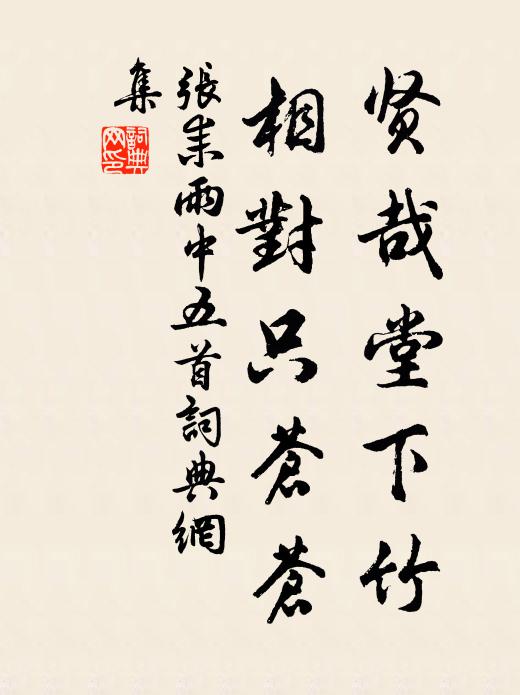 贤哉堂下竹
相對只蒼蒼
張耒雨中五首詞典網
集
詞典網印